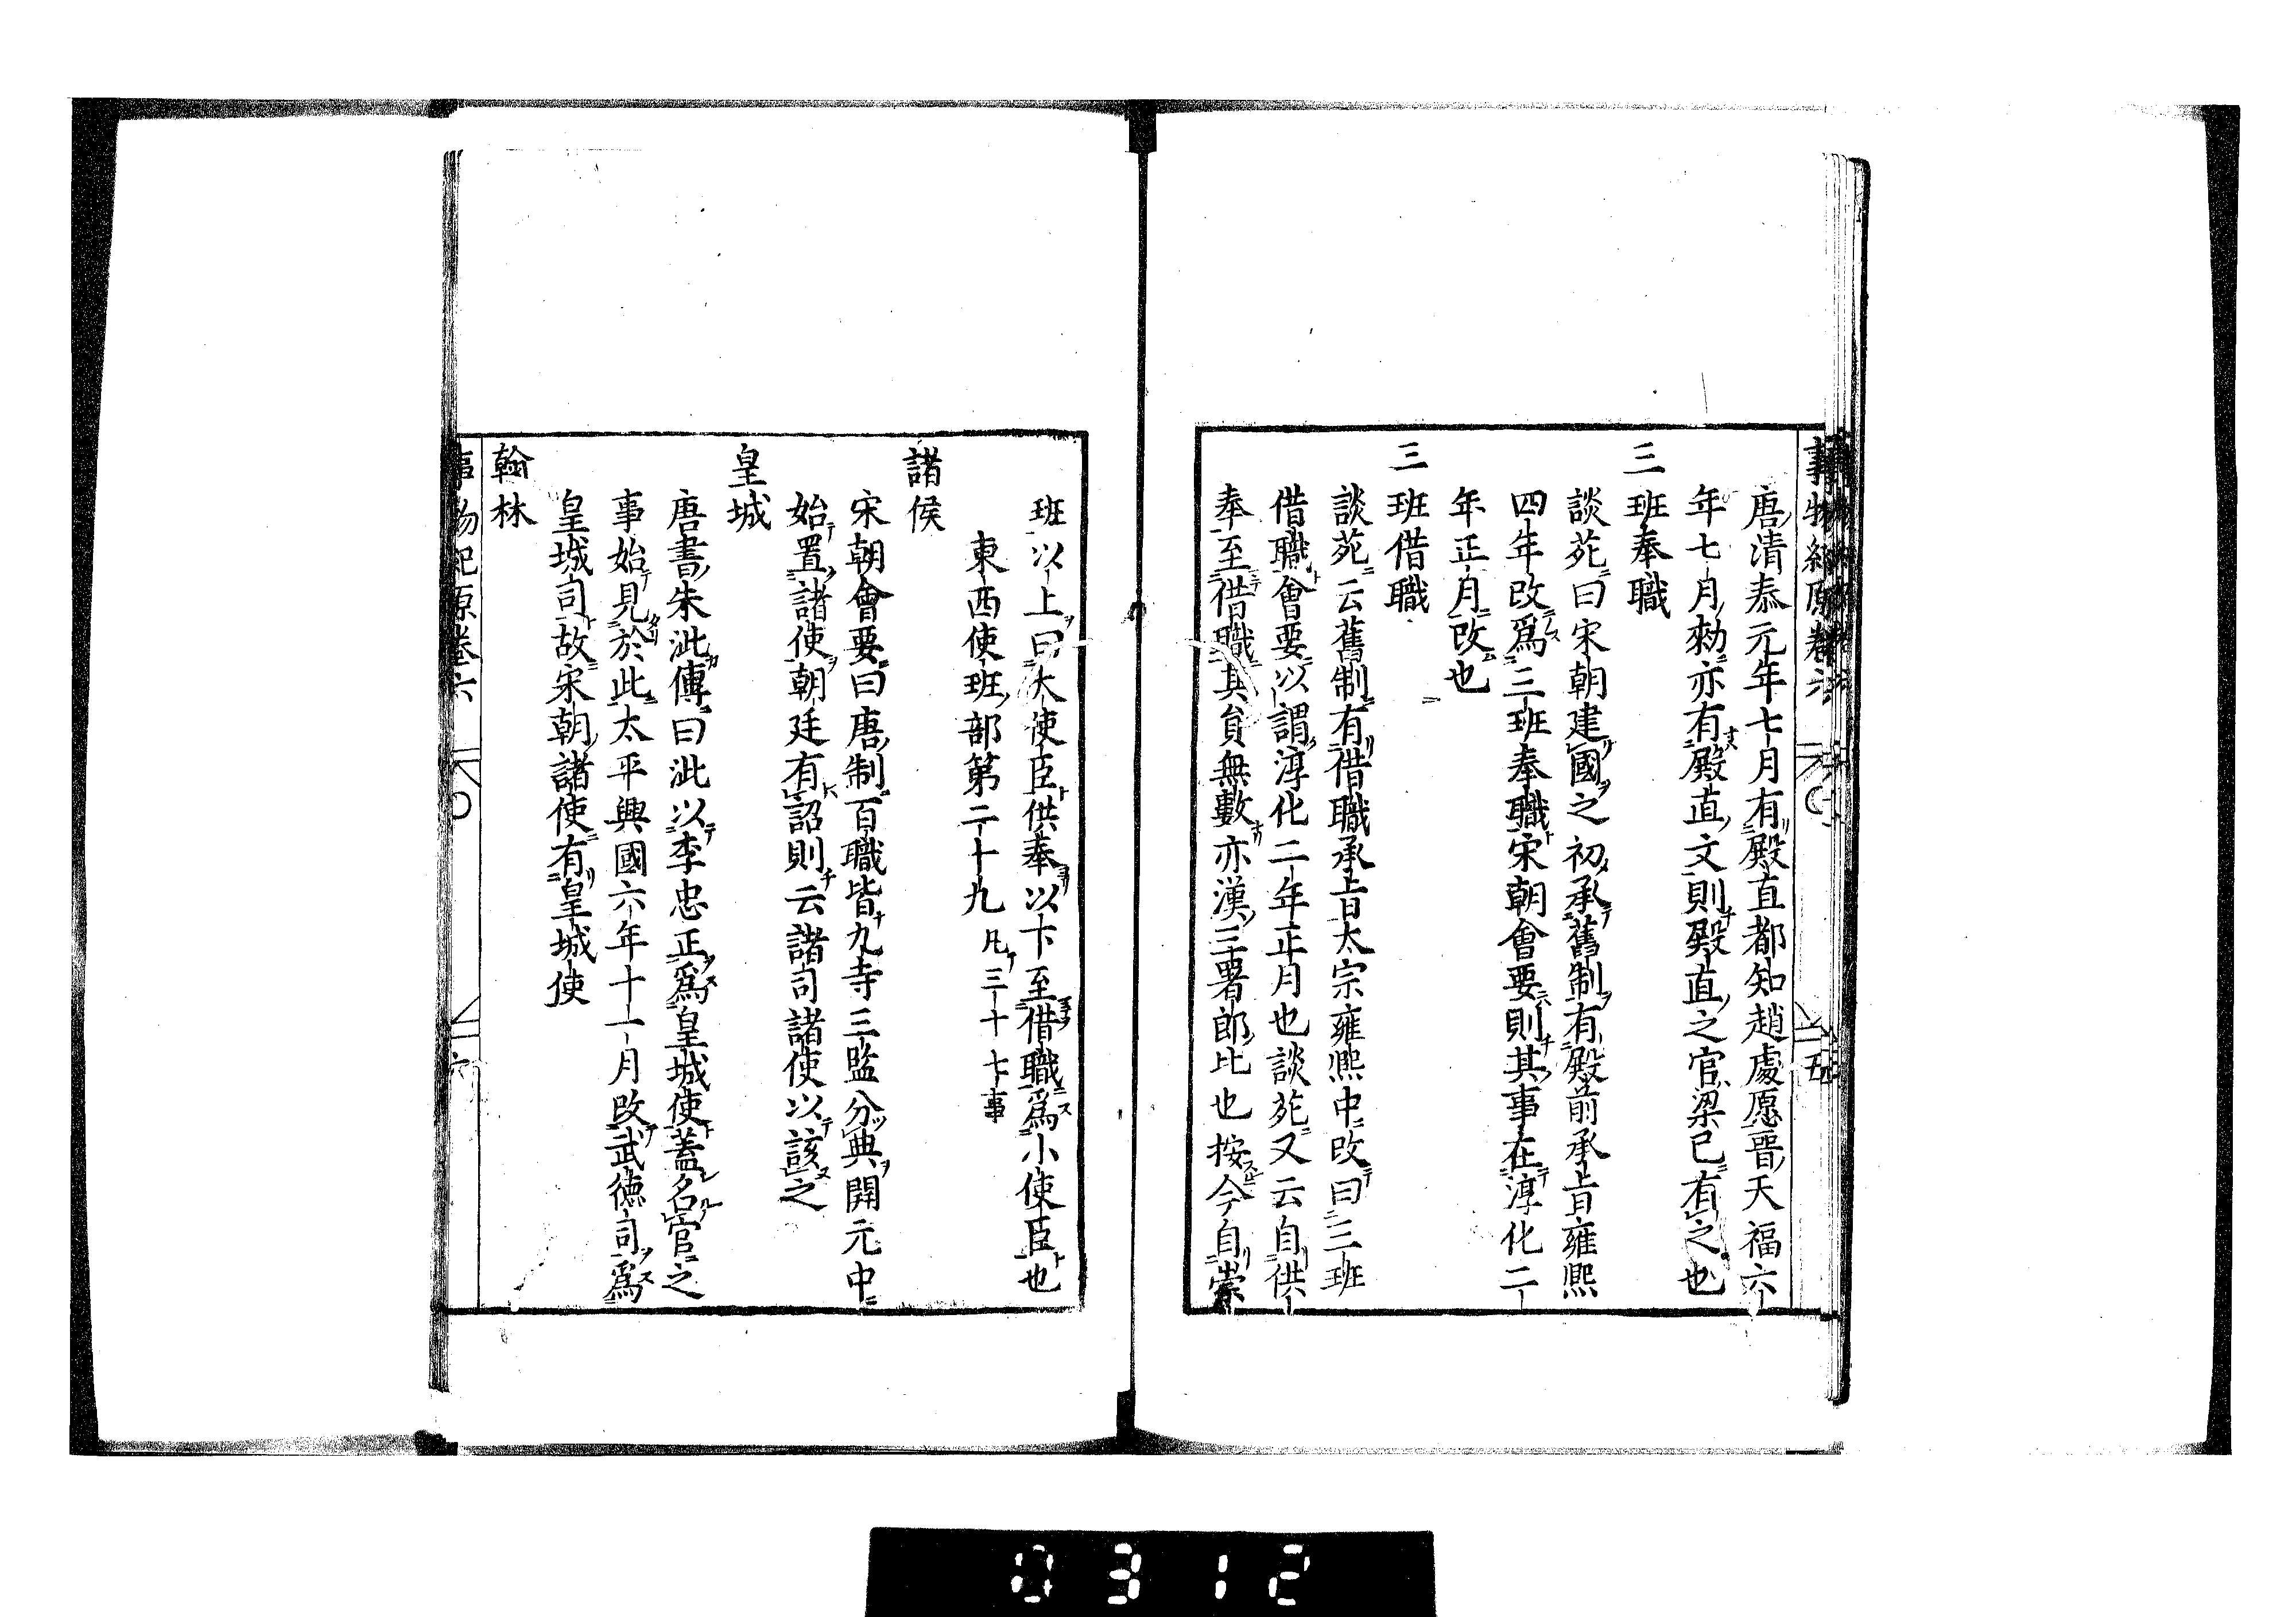 事物紀原卷六
五
唐清泰元年七月有殿直都知趙處愿晋天福六
年七月勑亦有殿直文則殿直之官梁已有之也
三班奉職
談苑曰宋朝建國之初承舊制有殿前承旨雍熙
四年改爲三班奉職宋朝會要則其事在淳化二
年正月改也
三班借職
談苑云舊制有借職承旨太宗雍熙中改曰三班
借職會要以謂淳化二年正月也談苑又云自供
奉至借職其員無數亦漢三署郎比也按今自崇
班以上曰大使臣供奉以下至借職爲小使臣也
東西使班部第二十九 凡三十七事
諸侯
宋朝會要曰唐制百職皆九寺三監分典開元中
始置諸使朝廷有詔則云諸司諸使以該之
皇城
唐書朱泚傳曰泚以李忠正爲皇城使蓋名官之
事始見於此太平興國六年十一月改武德司爲
皇城司故宋朝諸使有皇城使
翰林
事物紀原卷六
六
0312